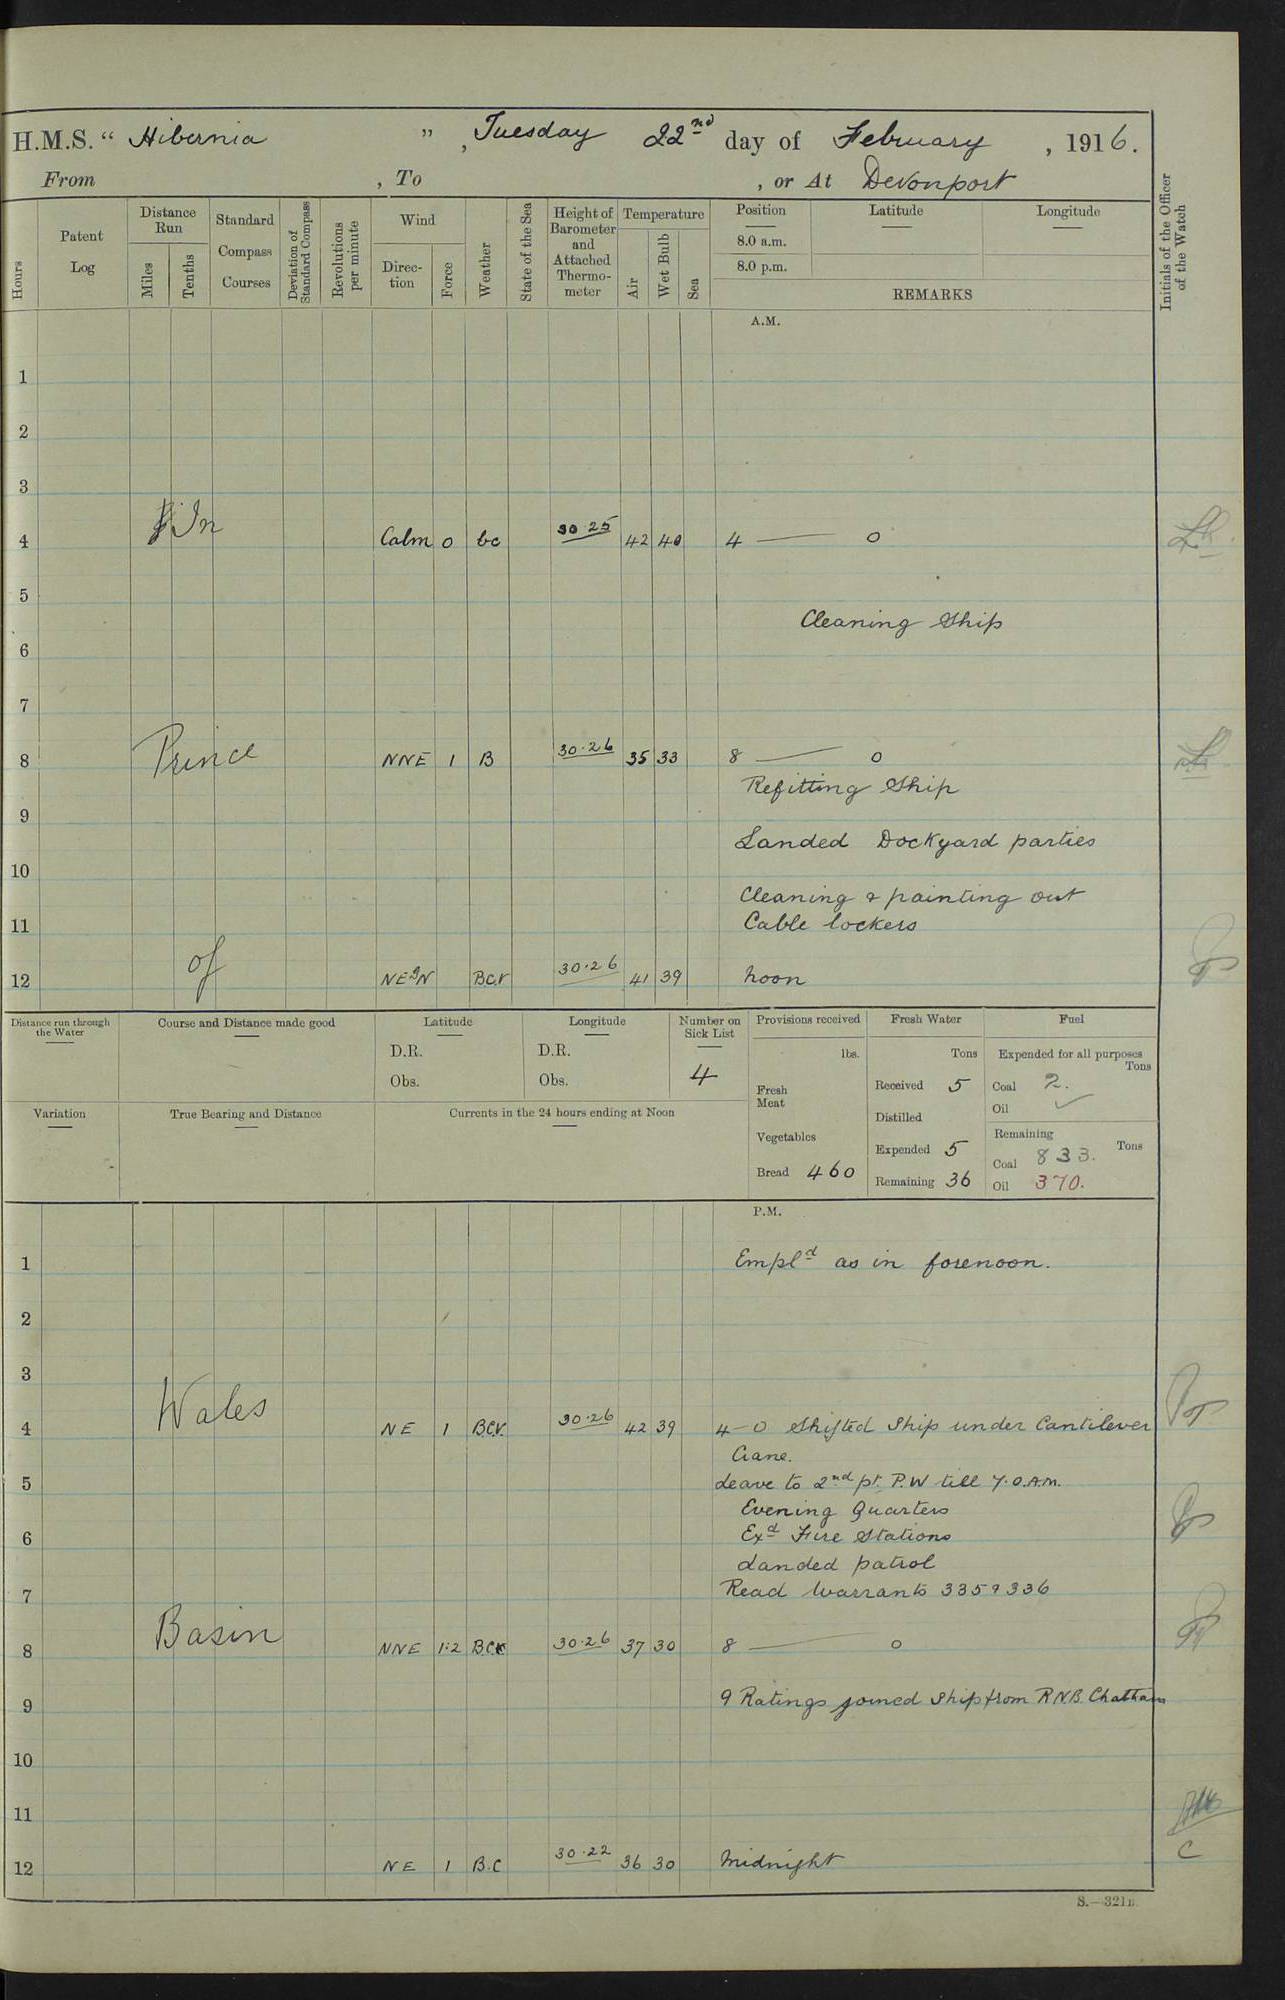 H.M.S. "Hibernia", Tuesday 22nd day of February, 1916.
From , To , or At Devonport
Hours
Patent Log
Distance Run
Miles
Tenths
Standard Compass Courses
Deviation of Standard Compass
Revolutions per minute
Wind
Direction
Force
Weather
State of the Sea
Height of Barometer and Attached Thermometer
Temperature
Air
Wet Bulb
Sea
Position
8.0 a.m.
8.0 p.m.
Latitude
Longitude
REMARKS
Initials of the Officer of the Watch
A.M.
1
2
3
In
4 Calm 0 bc 30.25 42 40 4 — 0
5
Cleaning Ship
6
7
Prince
8 NNE 1 B 30.26 35 33 8 — 0
Refitting Ship
9
Landed Dockyard parties
10
Cleaning & painting out
11 Cable lockers
of
12 NE9N BCV 30.26 41 39 Noon
Distance run through the Water
Course and Distance made good
Latitude
D.R.
Obs.
Longitude
D.R.
Obs.
Number on Sick List
4
Provisions received
lbs.
Fresh Meat
Vegetables
Bread 460
Fresh Water
Tons
Received 5
Distilled
Expended 5
Remaining 36
Fuel
Expended for all purposes
Tons
Coal 2.
Oil ✓
Remaining
Tons
Coal 833.
Oil 370.
Variation
True Bearing and Distance
Currents in the 24 hours ending at Noon
P.M.
1 Empld as in forenoon.
2
3
Wales
4 NE 1 BCV 30.26 42 39 4-0 Shifted Ship under Cantilever
Crane.
5 Leave to 2nd pt. P.W till 7.0.A.M.
Evening Quarters
6 Exd Fire Stations
Landed patrol
7 Read Warrants 335 9 336
Basin
8 NNE 1:2 BC 30.26 37 30 8 — 0
9 9 Ratings joined Ship from R.N.B. Chatham
10
11
12 NE 1 B.C 30.22 36 30 Midnight
C
S.—321B.